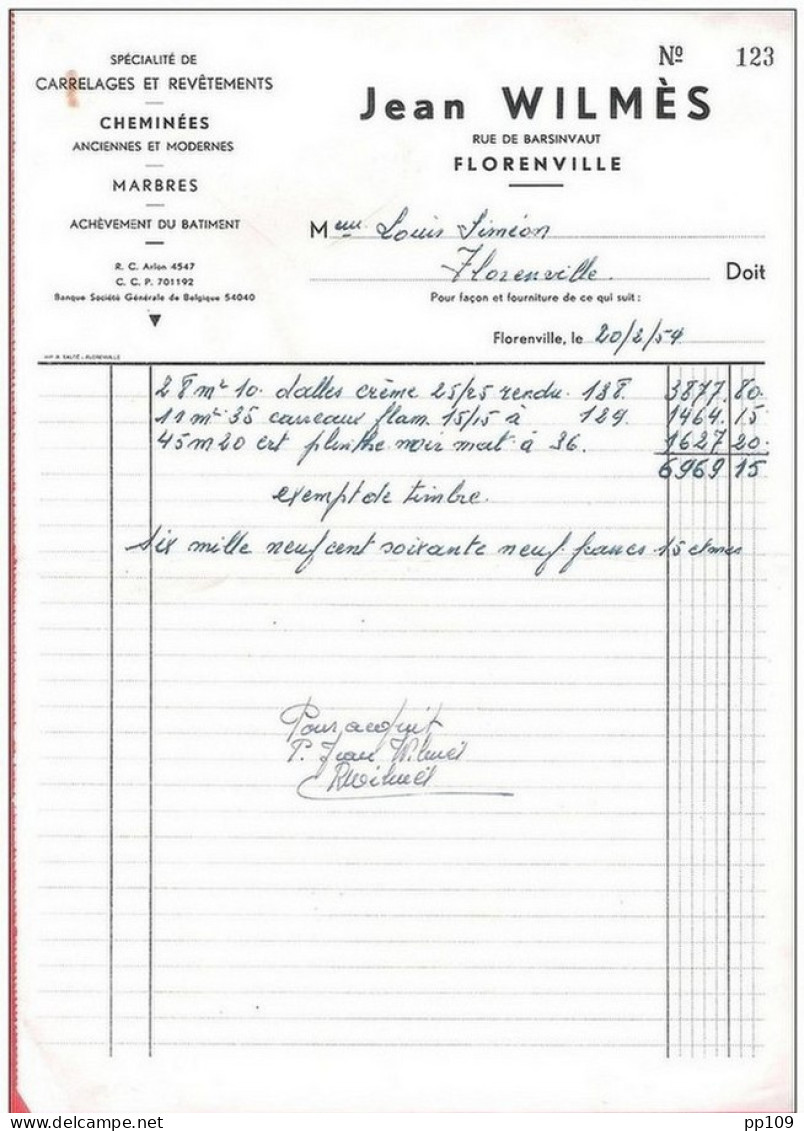 SPÉCIALITÉ DE
CARRELAGES ET REVÊTEMENTS
CHEMINÉES
ANCIENNES ET MODERNES
MARBRES
ACHÈVEMENT DU BATIMENT
R. C. Arlon 4547
C. C. P. 701192
Banque Société Générale de Belgique 54040
Nº 123
Jean WILMÈS
RUE DE BARSINVAUT
FLORENVILLE
Louis Siméon
Florenville. Doit
Pour façon et fourniture de ce qui suit :
Florenville, le 20/2/54
IMP. R. SALTÉ - FLORENVILLE
28 m² 10. dalles crème 25/25 rendu. 138. 3877. 80.
11 m² 35 carreaux flam. 15/15 à 129. 1464. 15
45 m 20 ert plinthe noir mat à 36. 1627 20.
6969 15
exempt de timbre.
Six mille neuf cent soixante neuf francs 15 ctmes
Pour acquit
P. Jean Wilmès
RWilmès
Delcampe.net
pp109